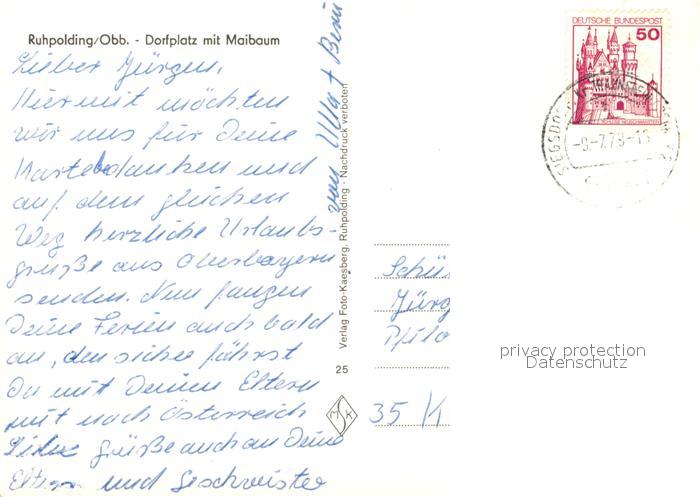 Ruhpolding/Obb. - Dorfplatz mit Maibaum
Lieber Jürgen,
Hiermit möchten
wir uns für Deine
Karte bedanken und
auf dem gleichen
Weg herzliche Urlaubs-
grüße aus Oberbayern
senden. Nun fangen
Deine Ferien auch bald
an, denn sicher fährst
Du mit Deinen Eltern
mit nach Österreich
Liebe Grüße auch an Deine
Eltern und Geschwister
von Ulla + Berni
Verlag Foto-Kaesberg, Ruhpolding - Nachdruck verboten
25
M K
DEUTSCHE BUNDESPOST
50
SIEGSDORF
-8.-7.78-
Schü
Jürg
35 K
privacy protection
Datenschutz